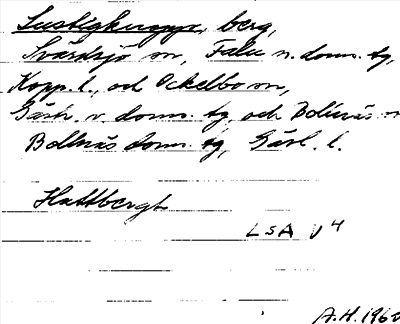 Lustigkuppe, berg,
Svärdsjö sn, Falu n. doms. tg,
Kopp. l., och Ockelbo sn,
Gästr. v. doms. tg, och Bollnäs
Bollnäs doms. tg, Gävl. l.
Hattberget
LSA V4
A.H. 1960